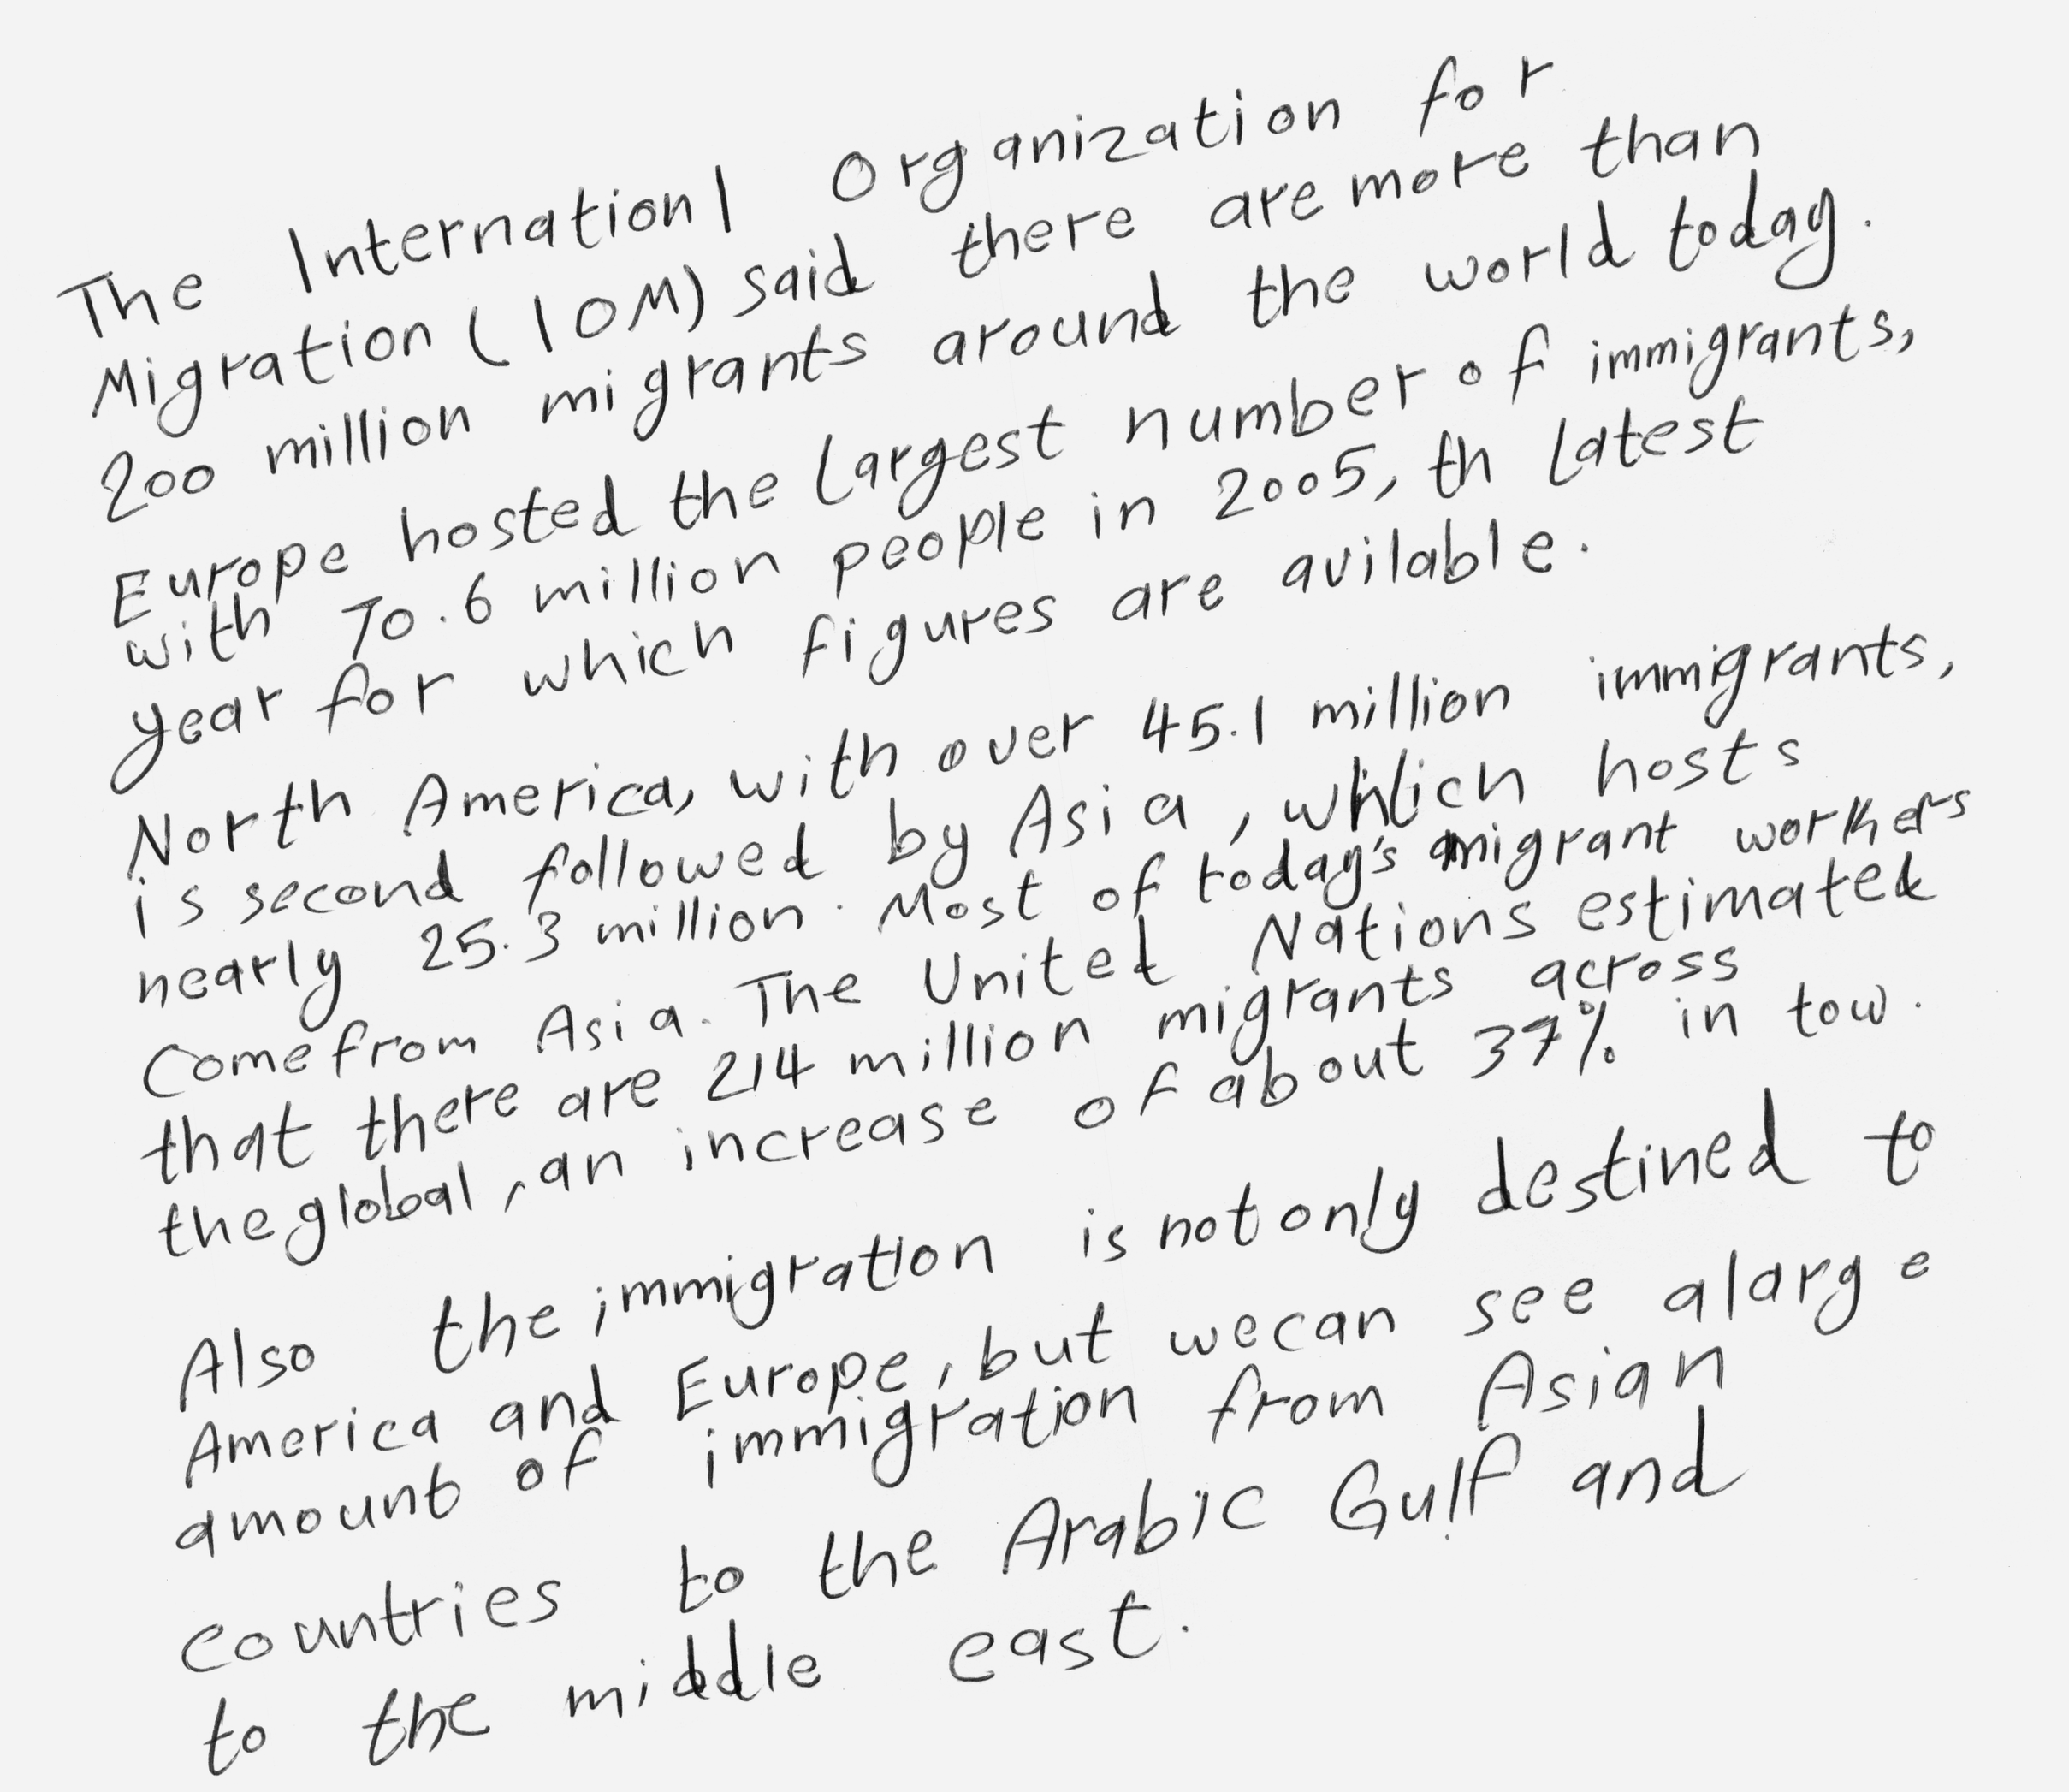 The Internationl Organization for
Migration (IOM) said there are more than
200 million migrants around the world today.
Europe hosted the largest number of immigrants,
with 70.6 million people in 2005, th latest
year for which figures are avilable.
North America, with over 45.1 million immigrants,
is second followed by Asia, which hosts
nearly 25.3 million. Most of today's migrant workers
Come from Asia. The United Nations estimated
that there are 214 million migrants across
the global, an increase of about 37% in tow.
Also the immigration is not only destined to
America and Europe, but we can see a large
amount of immigration from Asian
countries to the Arabic Gulf and
to the middle east.